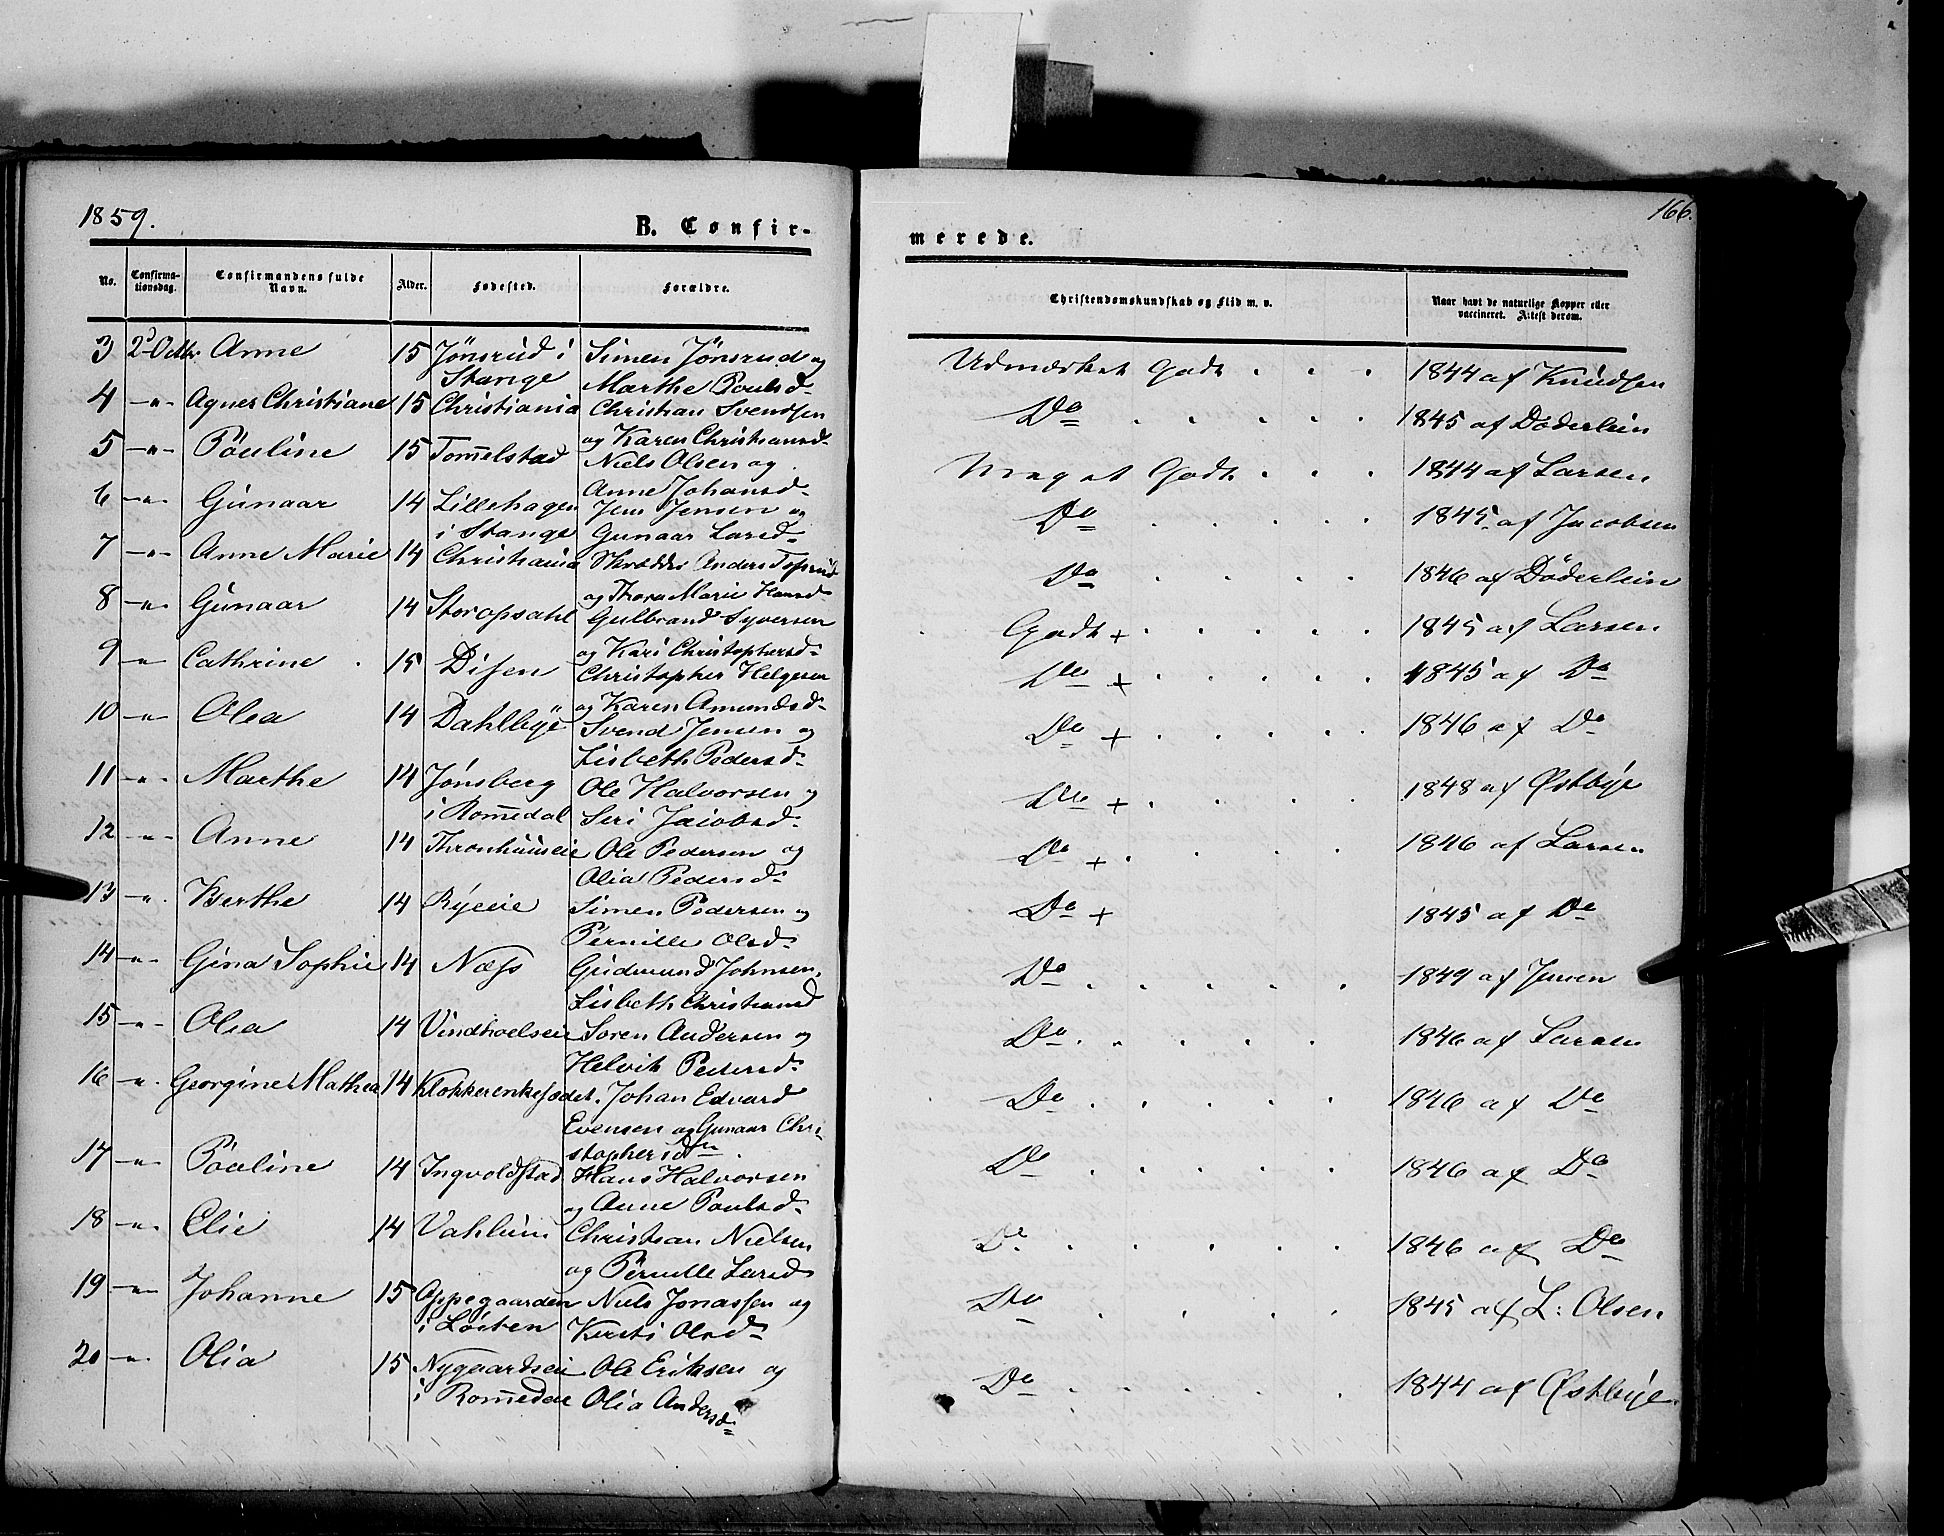 1859.
166.
B. Confir-
merede.
No.
Confirma-
tionsdag.
Confirmandens fulde
Navn.
Alder.
Fødested.
Forældre.
Christendomskundskab og Flid m. v.
Naar havt de naturlige Kopper eller
vaccineret. Attest derom.
3 2 Octbr. Anne 15 Jønsrud i Simen Jønsrud og Udmærket Godt . . . 1844 af Knudsen
Stange Marthe Poulsd.
4 -"- Agnes Christiane 15 Christiania Christian Svendsen Do . . . . 1845 af Döderlein
og Karen Christiansd.
5 -"- Pouline 15 Tom̄elstad Niels Olsen og Meget Godt . . . 1844 af Larsen
Anne Johansd.
6 -"- Gunaar 14 Lillehagen Jens Jensen og Do . . . . 1845 af Jacobsen
i Stange Gunaar Larsd.
7 -"- Anne Marie 14 Christiania Skrædder Anders Do . . . . 1846 af Döderlein
og Thora Marie Hansd.
8 -"- Gunaar 14 Storopsahl Gulbrand Syversen Godt + . . . . 1845 af Larsen
og Kari Christophersd.
9 -"- Cathrine 15 Disen Christopher Helgesen Do + . . . . 1845 af Do
og Karen Amundsd.
10 -"- Olea 14 Dahlbye Svend Jensen og Do + . . . . 1846 af Do
Lisbeth Pedersd.
11 -"- Marthe 14 Jønsberg Ole Halvorsen og Do + . . . . 1848 af Østbye
i Rom̄edal Siri Jacobsd.
12 -"- Anne 14 Thronhuuseie Ole Pedersen og Do + . . . . 1846 af Larsen
Olia Pedersd.
13 -"- Berthe 14 Ryeeie Simen Pedersen og Do + 1845 af Do
Pernille Olsd.
14 -"- Gina Sophie 14 Næss Gudmund Johnsen, Do . . . . . 1849 af Jensen
Lisbeth Christiansd
15 -"- Olea 14 Vindhoelseie Soren Andersen og Do . . . . . 1846 af Larsen
Helvik Pedersd.
16 -"- Georgine Mathea 14 Klokkerenkesædet. Johan Edvard Do . . . . . 1846 af Do
Evensen og Gunaar Chri-
stophersdr.
17 -"- Pouline 14 Ingvoldstad Hans Halvorsen Do . . . . . 1846 af Do
og Anne Poulsd.
18 -"- Elie 14 Vahlum Christian Nielsen Do . . . . . 1846 af Do
og Pernille Larsd
19 -"- Johanne 15 Oppegaarden Niels Jonassen og Do . . . . 1845 af L: Olsen
i Löiten Kersti Olsd.
20 -"- Olia 15 Nygaardseie Ole Eriksen og Do . . . . . 1844 af Østbye.
i Rom̄edal Olia Andersd.